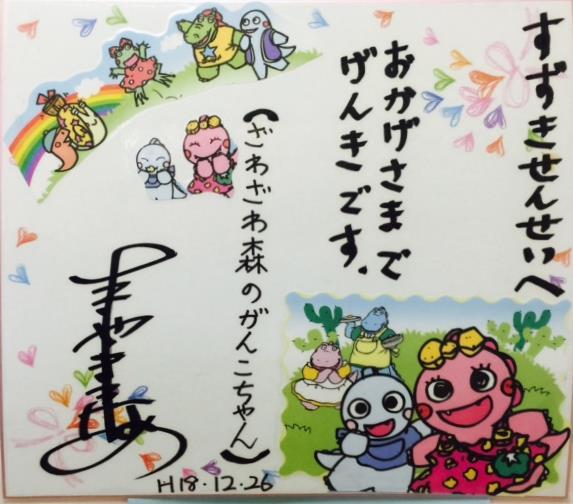 すずきせんせいへ
おかげさまで
げんきです.
(ざわざわ森のがんこちゃん)
H18.12.26